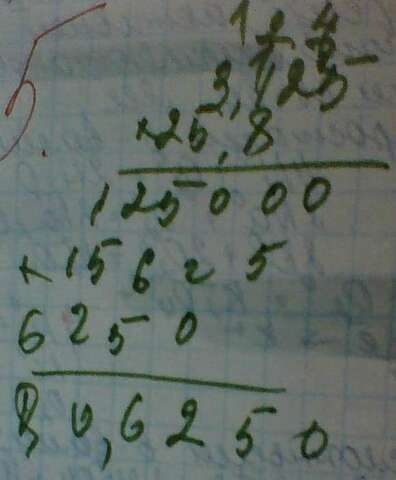 1 2 4
5.
3,125
×25,8
125000
+15625
6250
80,6250